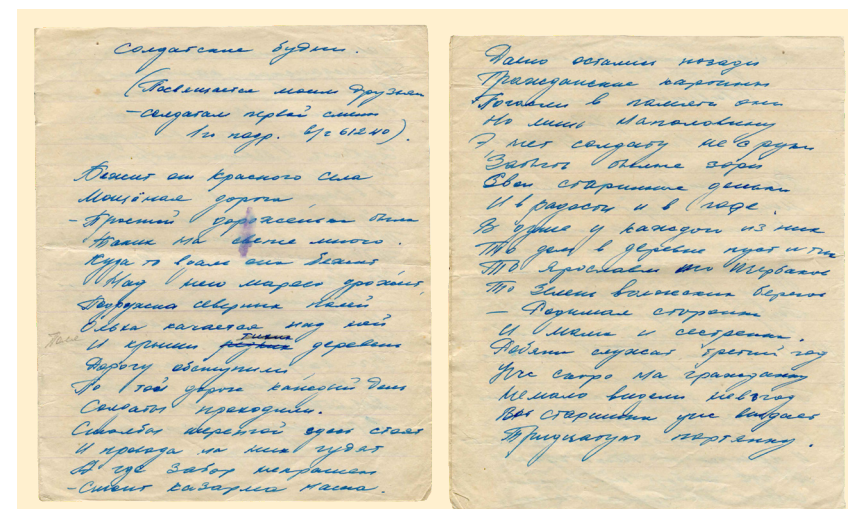 Солдатские будни.
(Посвящается моим друзьям
— солдатам первой смены
1го подр. в/ч 61240).
Бежит от Красного Села
Мощёная дорога
— Простой дорожёнкой была
Таких на свете много.
Куда то вдаль она бежит
Над нею марево дрожит,
Подружка северных полей
Ольха качается над ней
Поле
И крыши тихих деревень
Дорогу обступили
По той дороге каждый день
Солдаты проходили.
Столбы шеренгой здесь стоят
И провода на них гудят
А где забор некрашен
— Стоит казарма наша.
Давно остались позади
Гражданские картины
Погасли в памяти они
Но лишь наполовину
А нет солдату не с руки
Забыть былые зори
Свои старинные деньки
И в радости и в горе.
В душе у каждого из них
То дом в деревне пуст и тих
То Ярославль то Щербаков
То зелень волжских берегов
— Родимая сторонка
И мама и сестренка.
Ребята служат третий год
Уже скоро на гражданку
Немало видели невзгод
Вот старшина уже выдает
Тридцатую портянку.